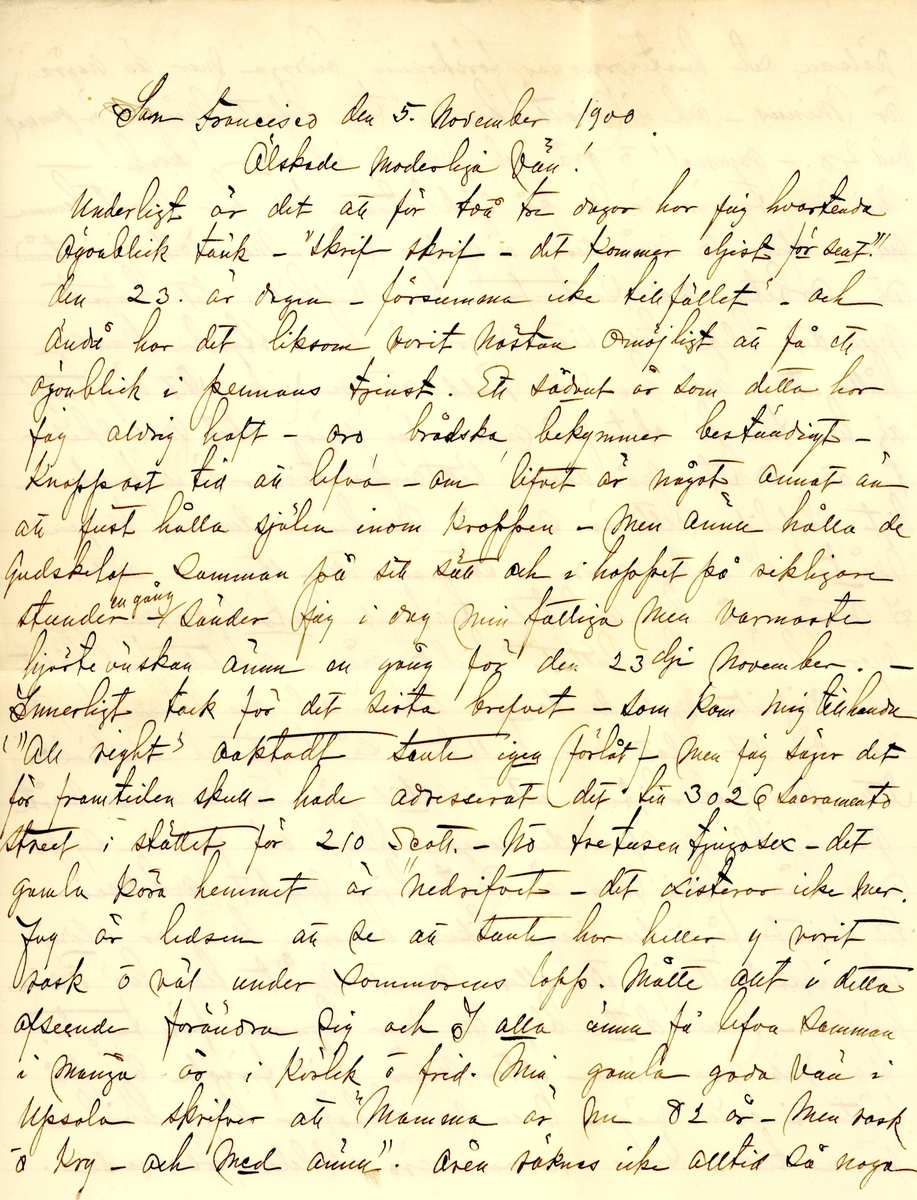 San Francisco den 5. November 1900.
Älskade Moderliga Vän!
Underligt är det att för två tre dagar har jag hvartenda
ögonblick tänk – "skrif skrif – det kommer eljest för sent"!
den 23. är dagen – försumma icke tillfället" – och
ändå har det liksom varit nästan omöjligt att få ett
ögonblick i pennans tjenst. Ett sådant år som detta har
jag aldrig haft – oro brådska, bekymmer beständigt –
Knappast tid att lefva – om lifvet är något annat än
att just hålla själen inom kroppen – Men ännu hålla de
Gudskelof samman på sitt sätt och i hoppet på rikligare
stunder en gång – sänder jag i dag min fattiga men varmaste
hjerteönskan ännu en gång för den 23dje November. –
Innerligt tack för det sista brefvet – som kom mig tillhanda
"All right" oaktadt tante igen (förlåt) – men jag säger det
för framtiden skull – hade adresserat det till 3026 Sacramento
Street i stället för 210 Scott. – No tretusentjugosex – det
gamla kära hemmet är nedrifvet – det existerar icke mer.
Jag är ledsen att se att tante har heller ej varit
rask o väl under sommarens lopp. Måtte allt i detta
afseende förändra sig och I alla ännu få lefva samman
i många år i kärlek o frid. Min gamla goda vän i
Upsala skrifver att "Mamma är nu 82 år – men rask
o kry – och med ännu". Åren räknas icke alltid så noga